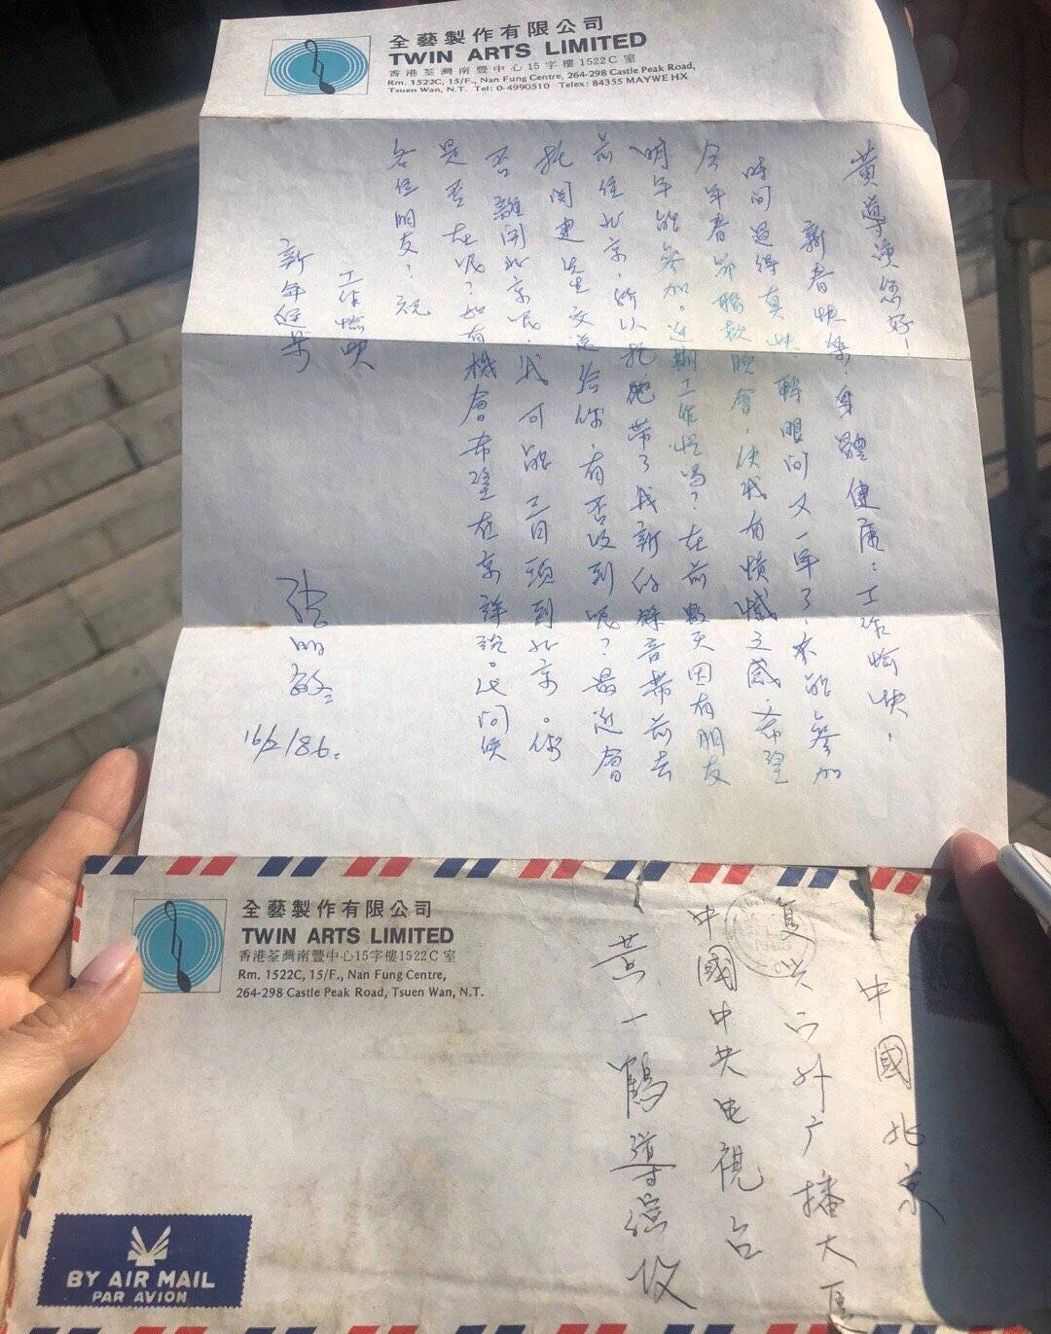 全藝製作有限公司
TWIN ARTS LIMITED
香港荃灣南豐中心15字樓1522C室
Rm. 1522C, 15/F., Nan Fung Centre, 264-298 Castle Peak Road,
Tsuen Wan, N.T. Tel: 0-4990510 Telex: 84355 MAYWE HX
黃導演您好！
新春快樂，身體健康；工作愉快，
時间過得真快，轉眼间又一年了，未能參加
今年春节聯歡晚會，使我有憤憾之感，希望
明年能參加。近期工作忙嗎？在前數天因有朋友
前往北京，所以托她带了我新的錄音帶前去
托阎建生交送给你，有否收到呢？最近會
否離開北京呢，我可能三月頭到北京。你
是否在呢？如有機會希望在京詳談。代问侯
各位朋友？祝
工作愉快
新年進步
張明敏
16/2/86.
全藝製作有限公司
TWIN ARTS LIMITED
香港荃灣南豐中心15字樓1522C室
Rm. 1522C, 15/F., Nan Fung Centre,
264-298 Castle Peak Road, Tsuen Wan, N.T.
中國北京
复兴门外广播大厦
中國中央电視台
黄一鶴導演收
BY AIR MAIL
PAR AVION